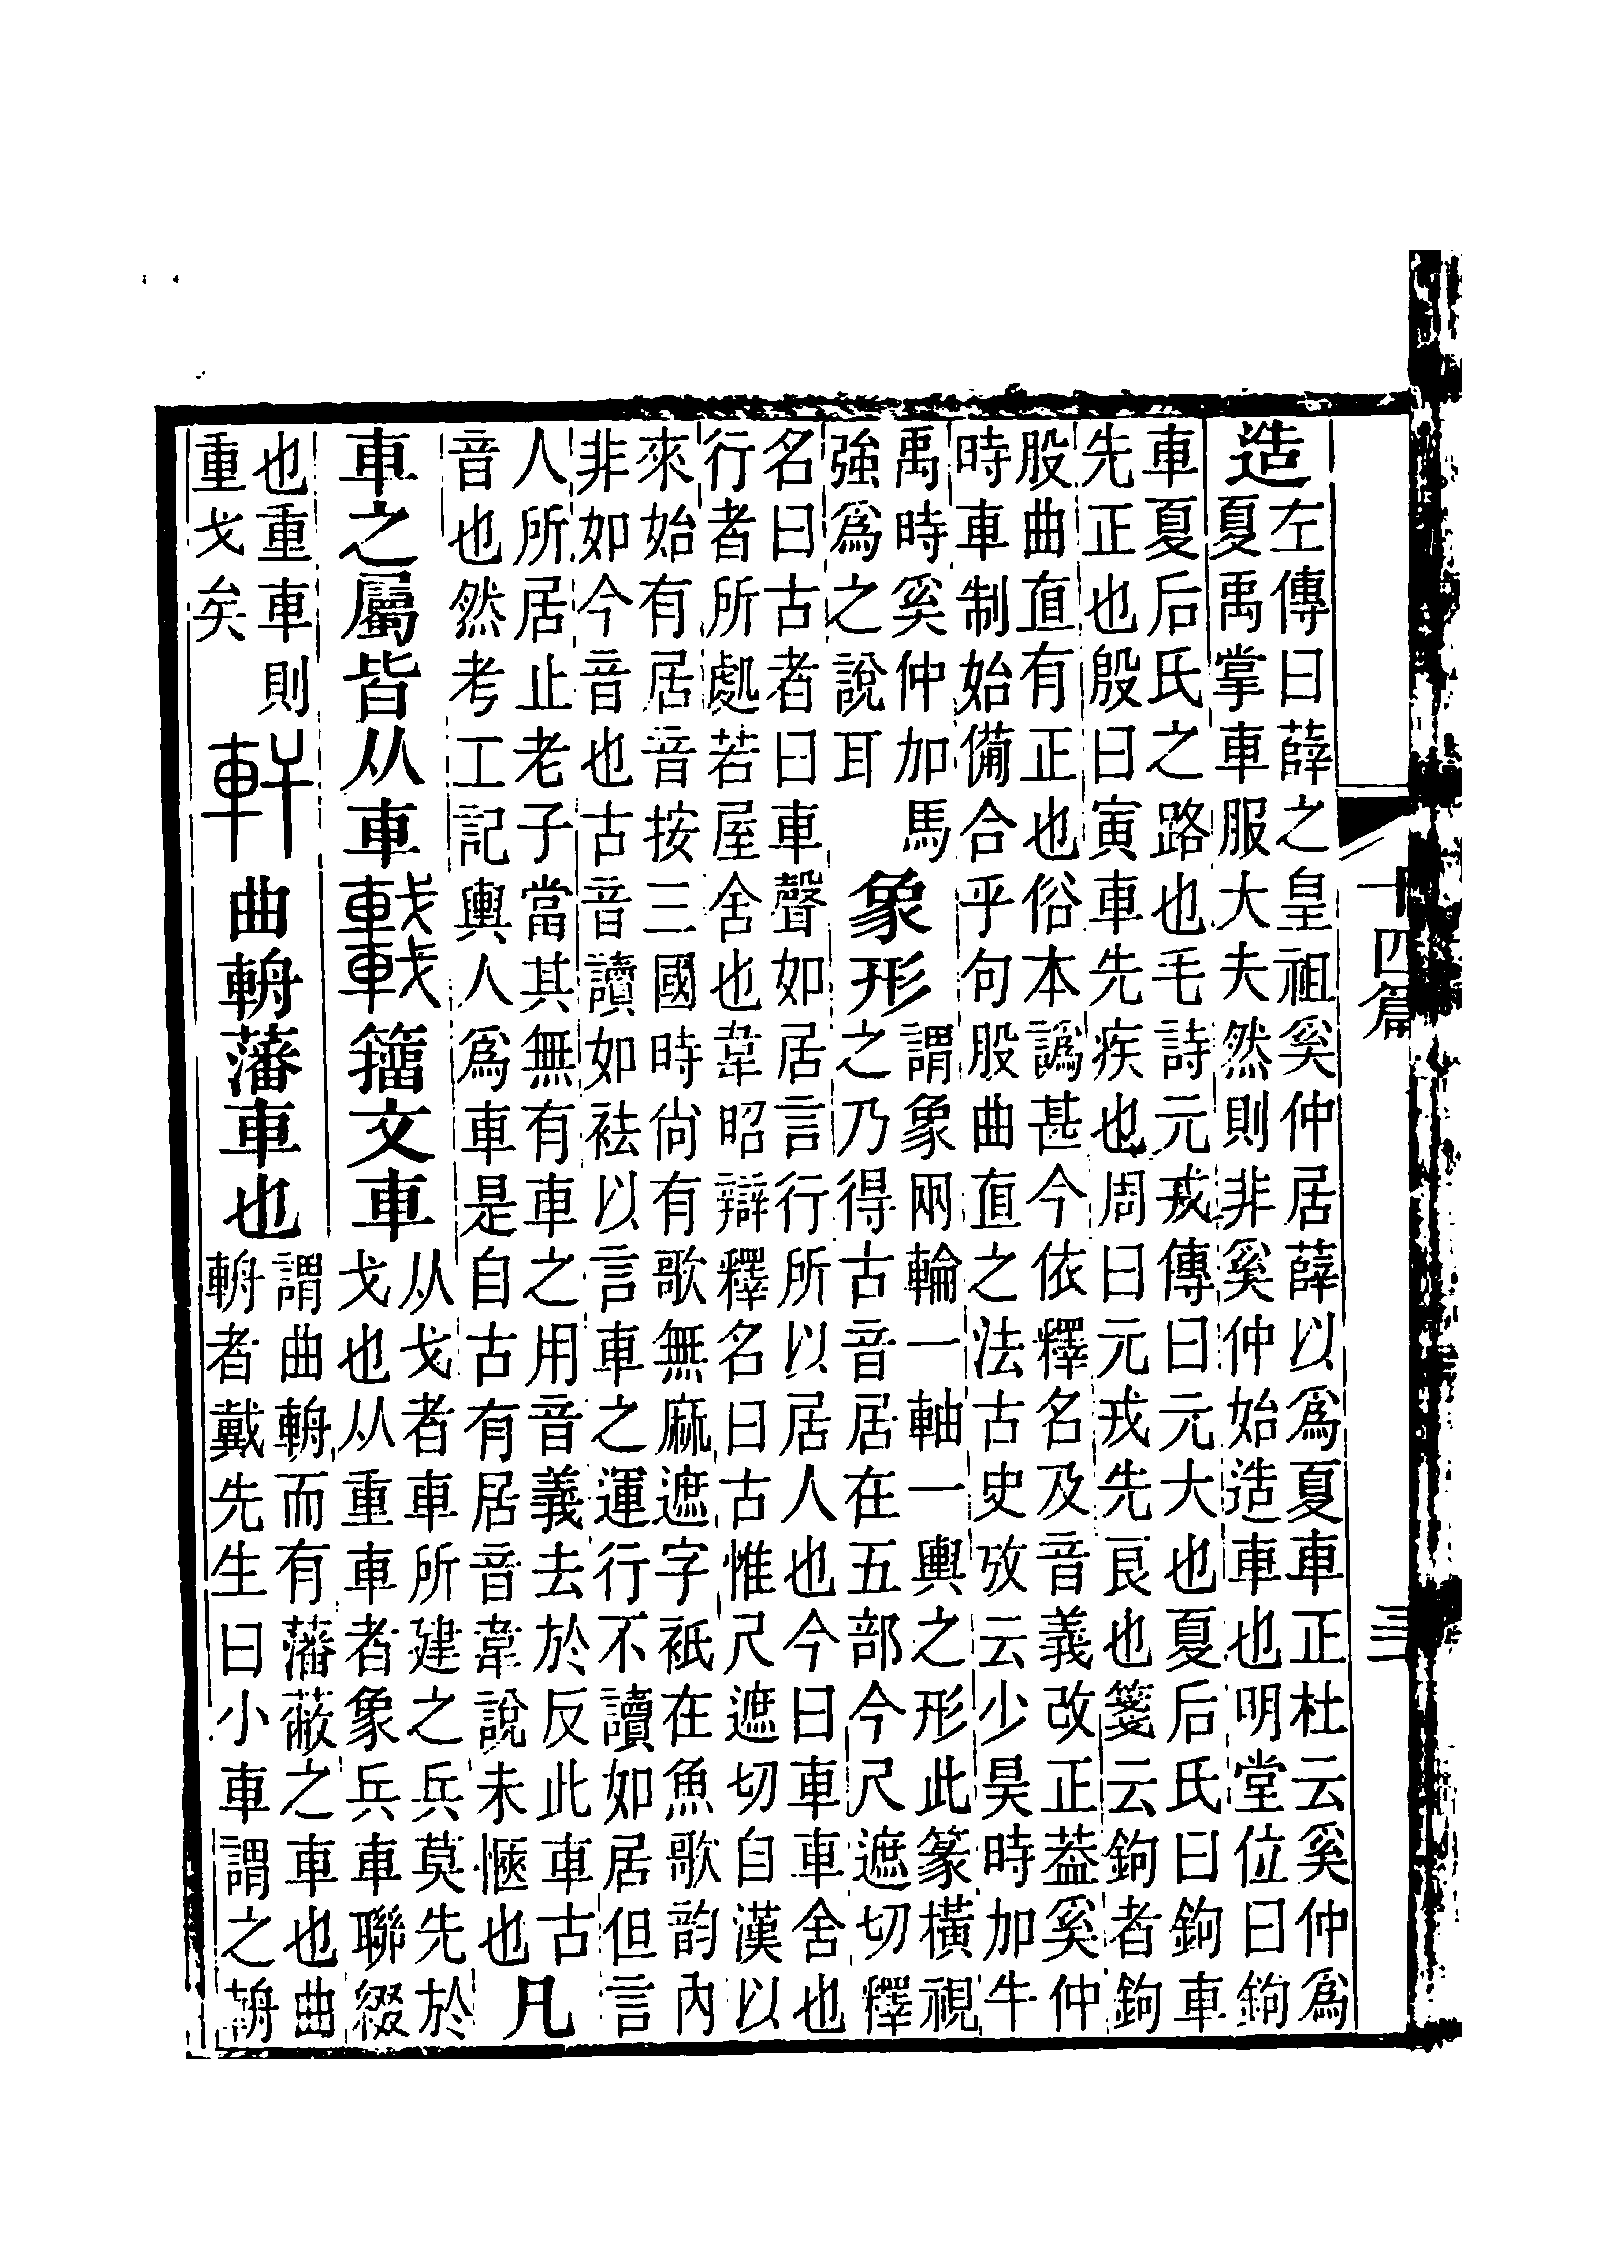 十四篇
三
造
左傳曰薛之皇祖奚仲居薛以爲夏車正杜云奚仲爲
夏禹掌車服大夫然則非奚仲始造車也明堂位曰鉤
車夏后氏之路也毛詩元戎傳曰元大也夏后氏曰鉤車
先正也殷曰寅車先疾也周曰元戎先良也箋云鉤者鉤
股曲直有正也俗本譌甚今依釋名及音義改正葢奚仲
時車制始備合乎句股曲直之法古史攷云少昊時加牛
禹時奚仲加馬
強爲之說耳
象形
謂象兩輪一軸一輿之形此篆橫視
之乃得古音居在五部今尺遮切釋
名曰古者曰車聲如居言行所以居人也今曰車車舍也
行者所處若屋舍也韋昭辯釋名曰古惟尺遮切自漢以
來始有居音按三國時尙有歌無麻遮字衹在魚歌韵內
非如今音也古音讀如袪以言車之運行不讀如居但言
人所居止老子當其無有車之用音義去於反此車古
音也然考工記輿人爲車是自古有居音韋說未愜也
凡
車之屬皆从車𨏖籒文車
从戈者車所建之兵莫先於
戈也从重車者象兵車聯綴
也重車則
重戈矣
軒曲輈藩車也
謂曲輈而有藩蔽之車也曲
輈者戴先生曰小車謂之輈